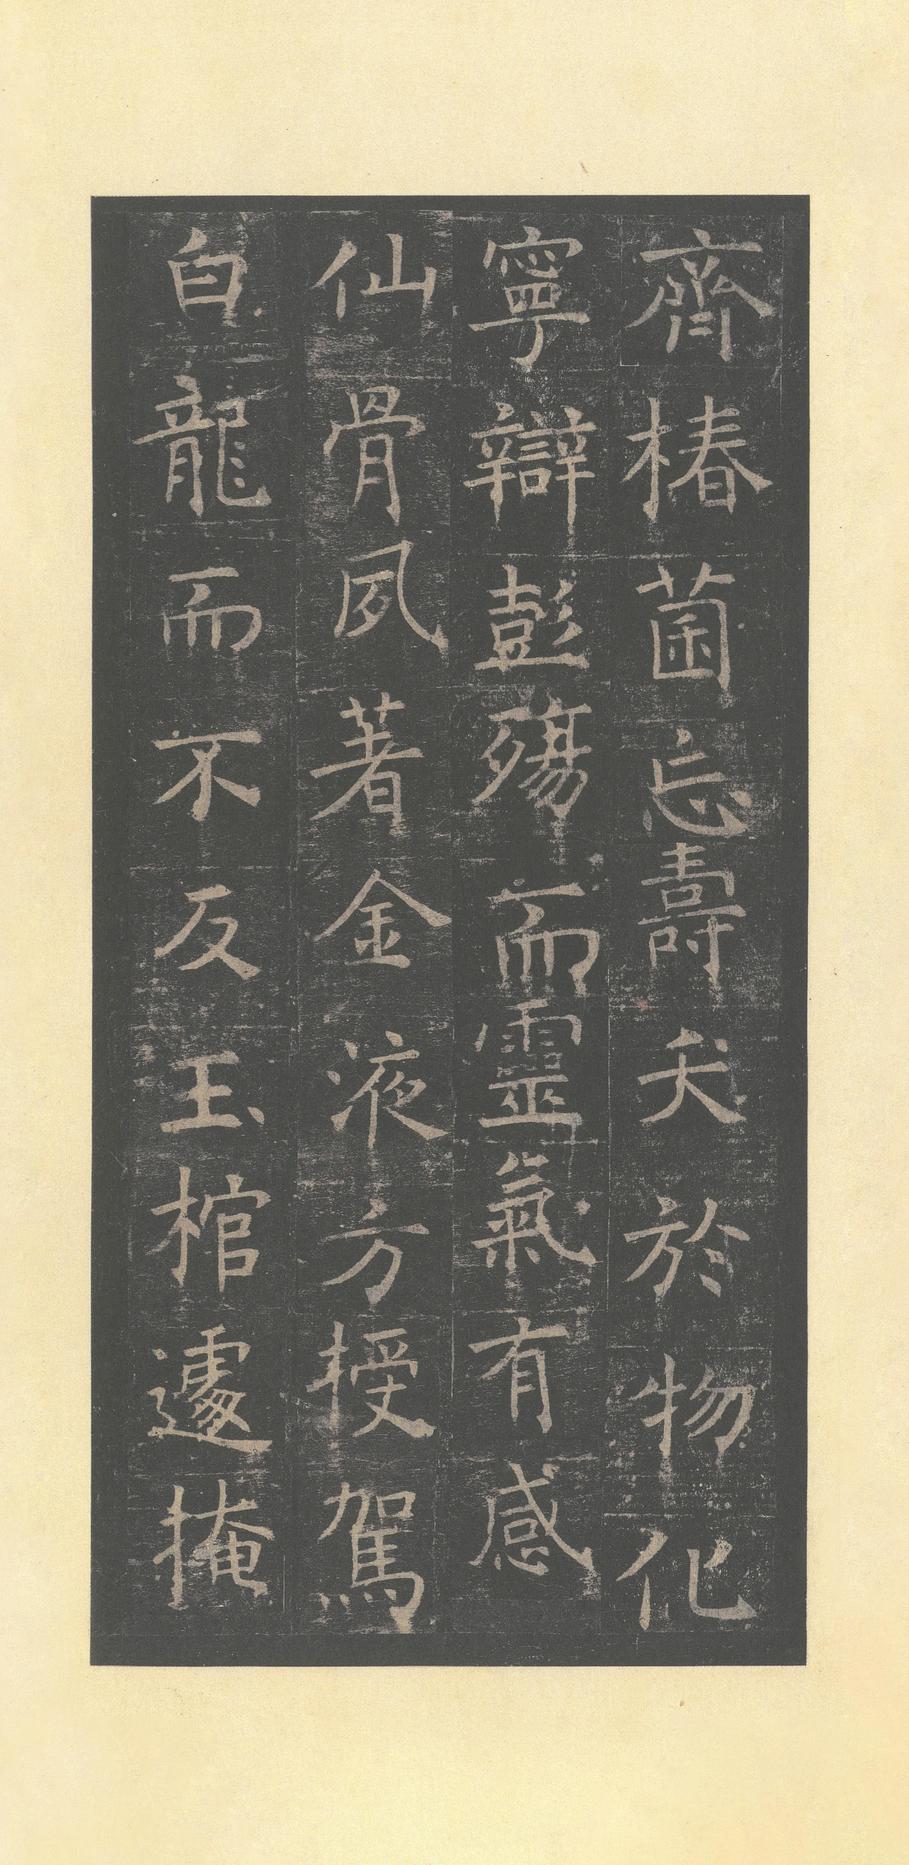 齊椿菌忘壽夭於物化
寧辯彭殤而靈氣有感
仙骨夙著金液方授駕
白龍而不反玉棺遽掩